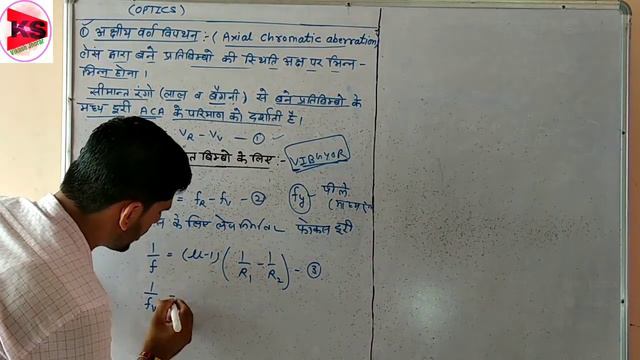 KS
(OPTICS)
① अक्षीय वर्ण विपथन :- (Axial chromatic aberration
लेंस द्वारा बने प्रतिबिम्बो की स्थिति अक्ष पर भिन्न-
भिन्न होना।
सीमान्त रंगो (लाल व बैगनी) से बने प्रतिबिम्बो के
मध्य दूरी ACA के परिमाण को दर्शाती है।
VR - VV — ①
बिम्बो के लिए :- VIBGYOR
= fR - fV — ② fy - पीले
के लिए फोकस दूरी
1/f = (μ-1) (1/R1 - 1/R2) — ③
1/fV =